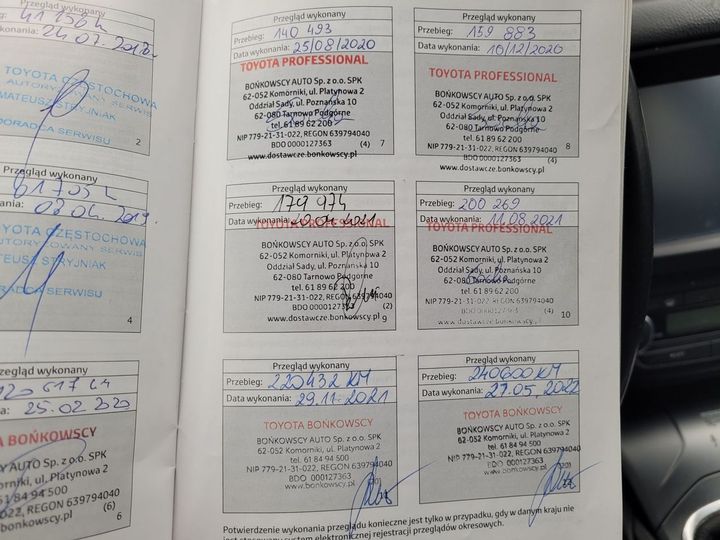 Przegląd wykonany
konania: 24.07.
TOYOTA CZĘSTOCHOWA
AUTORYZOWANY SERWIS
MATEUSZ STRYJNIAK
DORADCA SERWISU
2
Przegląd wykonany
TOYOTA CZĘSTOCHOWA
STRYJNIAK
SERWISU
4
Przegląd wykonany
25.02.2020
TA BOŃKOWSCY
AUTO Sp. z o.o. SPK
ul. Platynowa 2
61 84 94 500
022, REGON 639794040
bonkowscy.pl (6)
6
Przegląd wykonany
Przebieg: 140 493
Data wykonania: 25/08/2020
TOYOTA PROFESSIONAL
BOŃKOWSCY AUTO Sp. z o.o. SPK
62-052 Komorniki, ul. Platynowa 2
Oddział Sady, ul. Poznańska 10
62-080 Tarnowo Podgórne
tel. 61 89 62 200
NIP 779-21-31-022, REGON 639794040
BDO 0000127363 (4) 7
www.dostawcze.bonkowscy.pl
Przegląd wykonany
Przebieg: 159 883
Data wykonania: 10/12/2020
TOYOTA PROFESSIONAL
BOŃKOWSCY AUTO Sp. z o.o. SPK
62-052 Komorniki, ul. Platynowa 2
Oddział Sady, ul. Poznańska 10
62-080 Tarnowo Podgórne
tel. 61 89 62 200
NIP 779-21-31-022, REGON 639794040
BDO 0000127363 (4)
8
www.dostawcze.bonkowscy.pl
Przegląd wykonany
Przebieg: 179 974
Data wykonania:
TOYOTA PROFESSIONAL
BOŃKOWSCY AUTO Sp. z o.o. SPK
62-052 Komorniki, ul. Platynowa 2
Oddział Sady, ul. Poznańska 10
62-080 Tarnowo Podgórne
tel. 61 89 62 200
NIP 779-21-31-022, REGON 639794040
BDO 0000127363 (4)
www.dostawcze.bonkowscy.pl 9
Przegląd wykonany
Przebieg: 200 269
Data wykonania: 11.08.2021
TOYOTA PROFESSIONAL
BOŃKOWSCY AUTO Sp. z o.o. SPK
62-052 Komorniki, ul. Platynowa 2
Oddział Sady, ul. Poznańska 10
62-080 Tarnowo Podgórne
tel. 61 89 62 200
NIP 779-21-31-022, REGON 639794040
(4)
www.dostawcze.bonkowscy.pl 10
Przegląd wykonany
Przebieg: 220432 KM
Data wykonania: 29.11.2021
TOYOTA BOŃKOWSCY
BOŃKOWSCY AUTO Sp. z o.o. SPK
62-052 Komorniki, ul. Platynowa 2
tel. 61 84 94 500
NIP 779-21-31-022, REGON 639794040
BDO 000127363
www.bonkowscy.pl
Przegląd wykonany
Przebieg: 240600 KM
Data wykonania: 27.05.2022
TOYOTA BOŃKOWSCY
BOŃKOWSCY AUTO Sp. z o.o. SPK
62-052 Komorniki, ul. Platynowa 2
tel. 61 84 94 500
NIP 779-21-31-022, REGON 639794040
BDO 000127363
www.bonkowscy.pl
Potwierdzenie wykonania przeglądu konieczne jest tylko w przypadku, gdy w danym kraju nie
jest stosowany system elektronicznej rejestracji przeglądów okresowych.